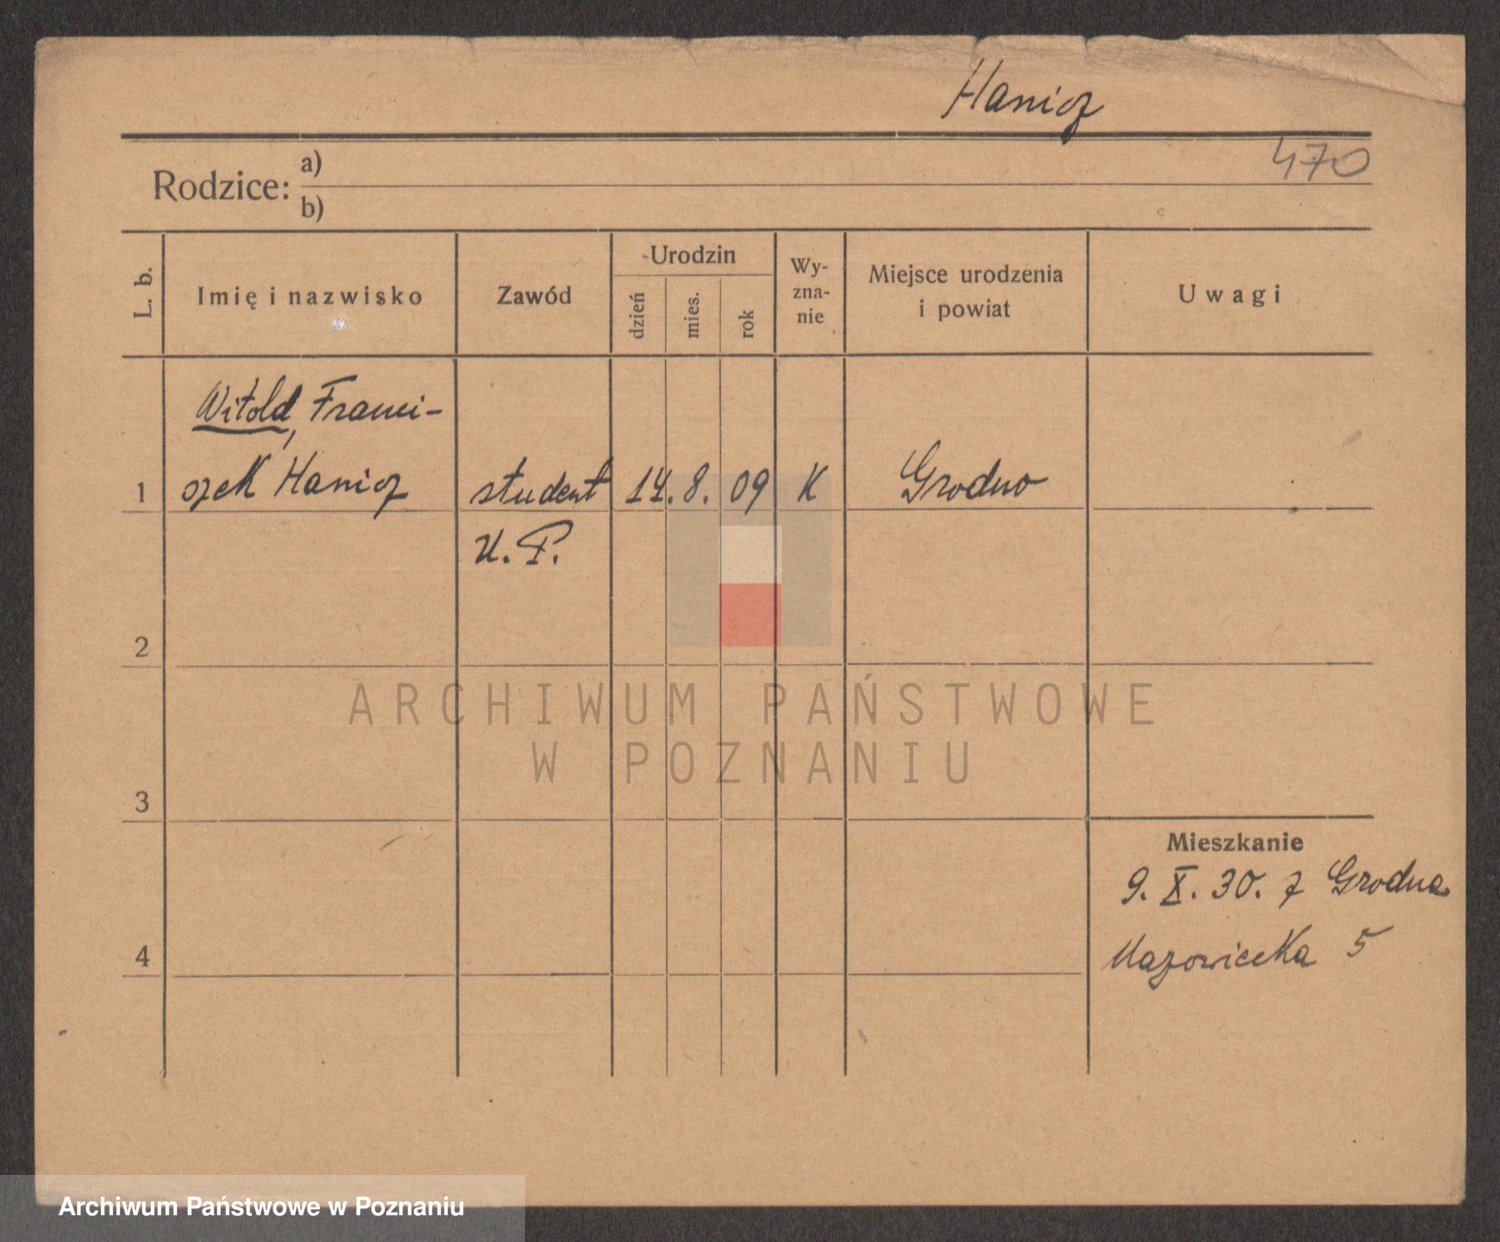 Hanicz
470
Rodzice: a)
b)
L. b.
Imię i nazwisko
Zawód
Urodzin
dzień
mies.
rok
Wy-
zna-
nie
Miejsce urodzenia
i powiat
Uwagi
Witold, Franci-
1 szek Hanicz student 14. 8. 09 K Grodno
U. P.
2
ARCHIWUM PAŃSTWOWE
W POZNANIU
3
Mieszkanie
9. X. 30. z Grodna
4 Mazowiecka 5
Archiwum Państwowe w Poznaniu